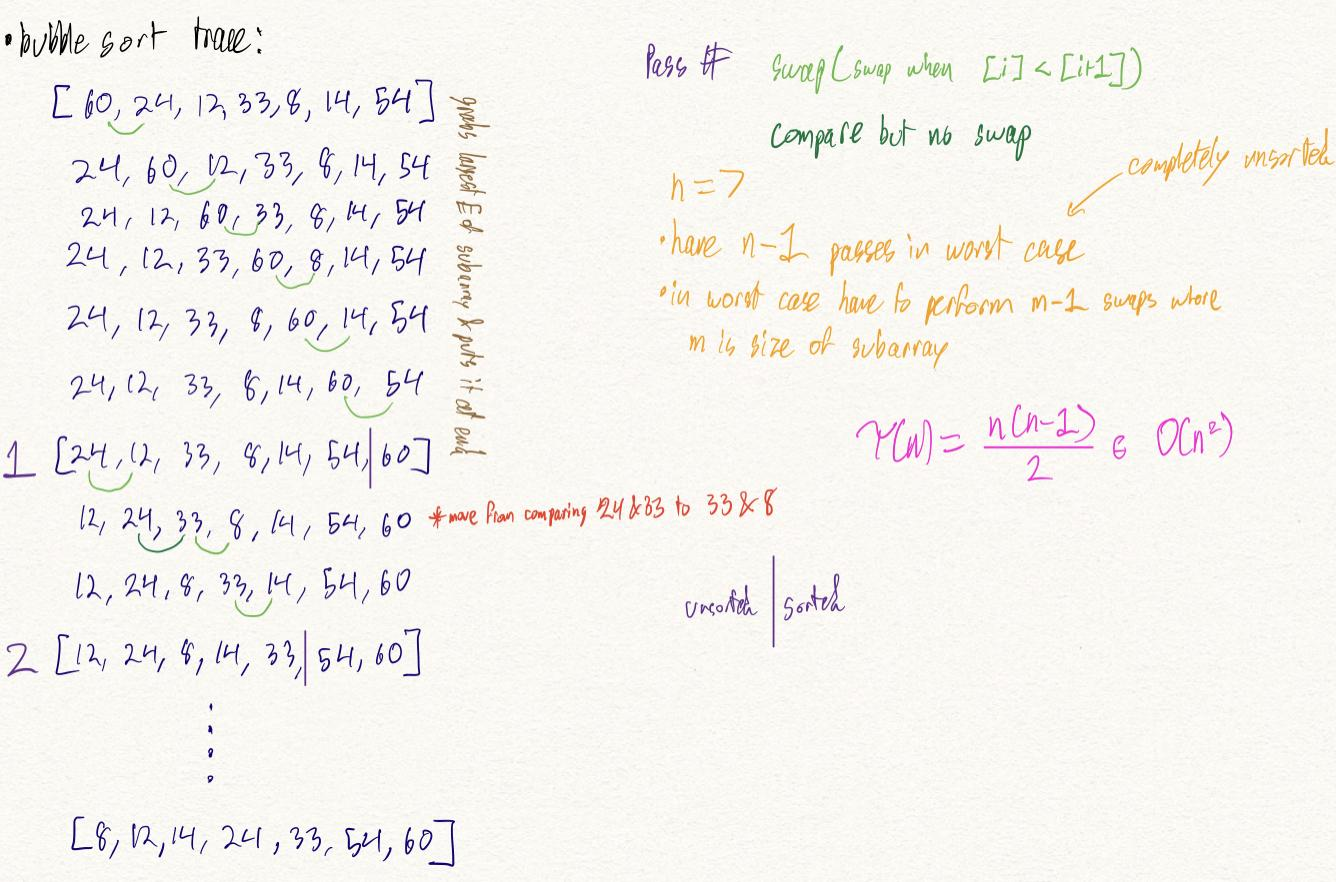 •bubble sort trace:
[60, 24, 12, 33, 8, 14, 54]
24, 60, 12, 33, 8, 14, 54
24, 12, 60, 33, 8, 14, 54
24, 12, 33, 60, 8, 14, 54
24, 12, 33, 8, 60, 14, 54
24, 12, 33, 8, 14, 60, 54
1 [24, 12, 33, 8, 14, 54,|60]
12, 24, 33, 8, 14, 54, 60 *move from comparing 24&33 to 33&8
12, 24, 8, 33, 14, 54, 60
2 [12, 24, 8, 14, 33,|54, 60]
[8, 12, 14, 24, 33, 54, 60]
grabs largest E of subarray & puts it at end
Pass # swap (swap when [i] < [i+1])
compare but no swap
completely unsorted
n = 7
•have n-1 passes in worst case
•in worst case have to perform m-1 swaps where
m is size of subarray
T(n) = n(n-1)/2 ∈ O(n²)
unsorted | sorted